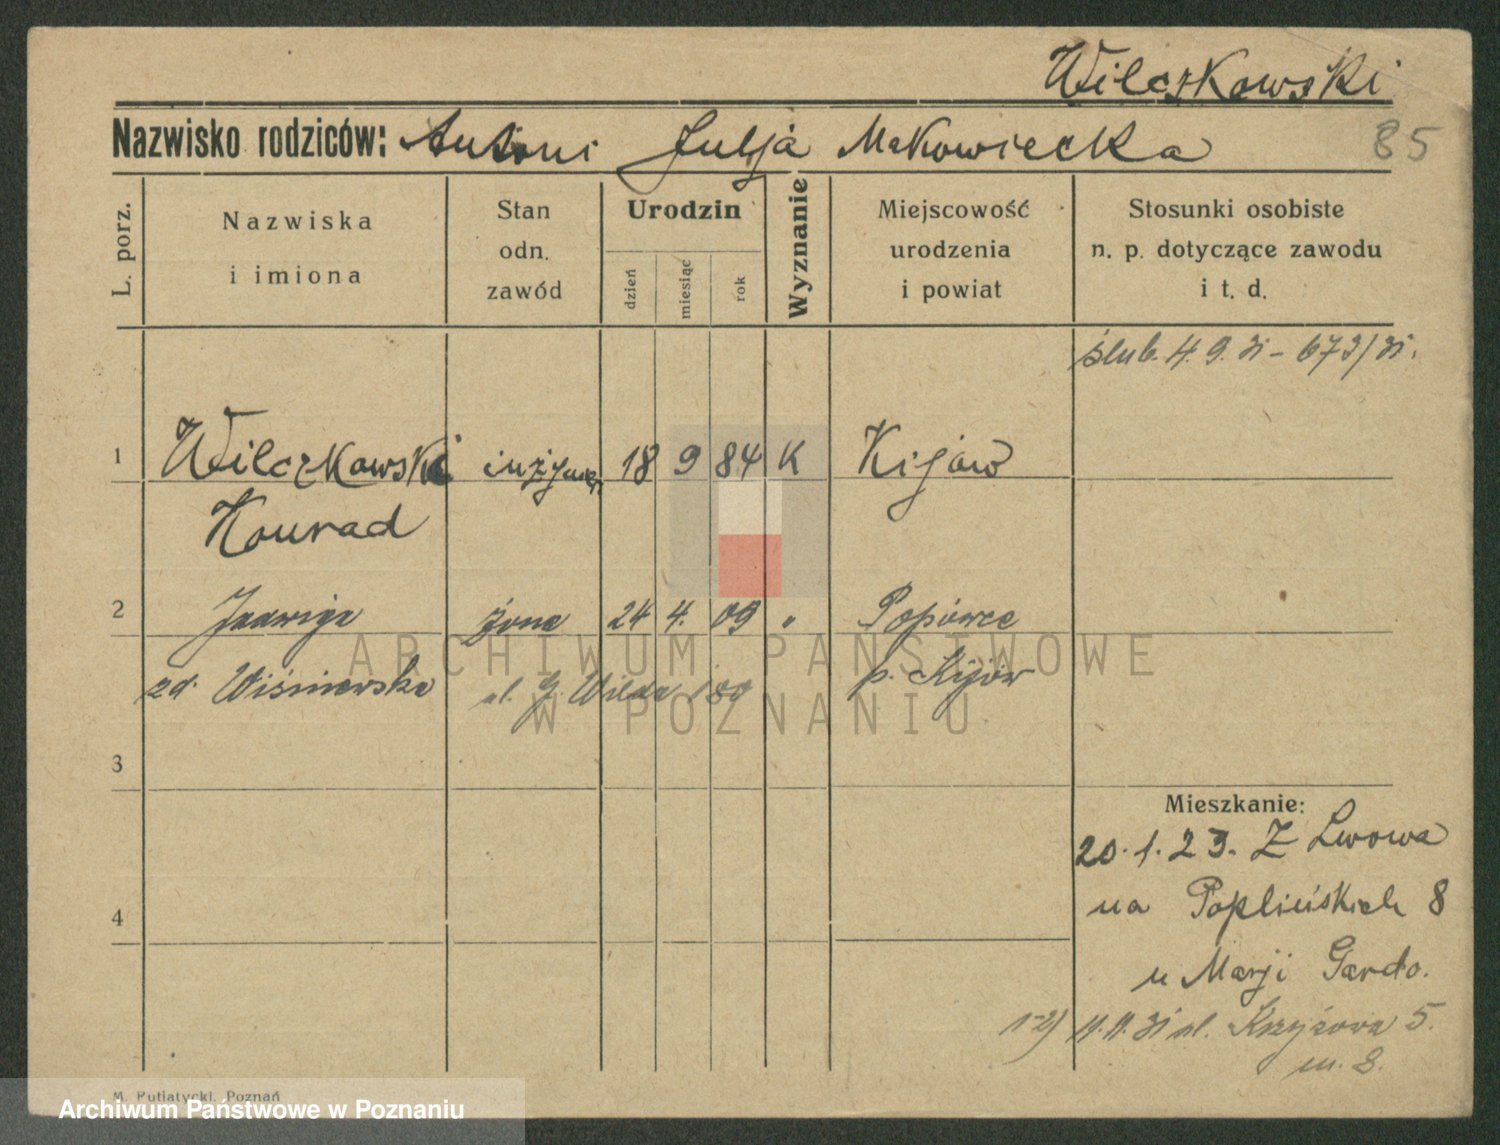 Wilczkowski
Nazwisko rodziców: Antoni Julja Makowiecka
85
L. porz.
Nazwiska
i imiona
Stan
odn.
zawód
Urodzin
dzień
miesiąc
rok
Wyznanie
Miejscowość
urodzenia
i powiat
Stosunki osobiste
n. p. dotyczące zawodu
i t. d.
ślub. 4. 9. 31 – 673/31.
1 Wilczkowski inżynier 18 9 84 K Kijów
Konrad
2 Jadwiga żona 24 4. 09 " Popówce
zd. Wiśniewska ul. G. Wilda 89 p. Kijów
3
Mieszkanie:
20. 1. 23. Z Lwowa
4 na Poplińskich 8
u Marji Gardo.
1-2) 11. 11. 31 ul. Krzyżowa 5.
m. 8.
M. Putiatycki, Poznań
ARCHIWUM PAŃSTWOWE
W POZNANIU
Archiwum Państwowe w Poznaniu